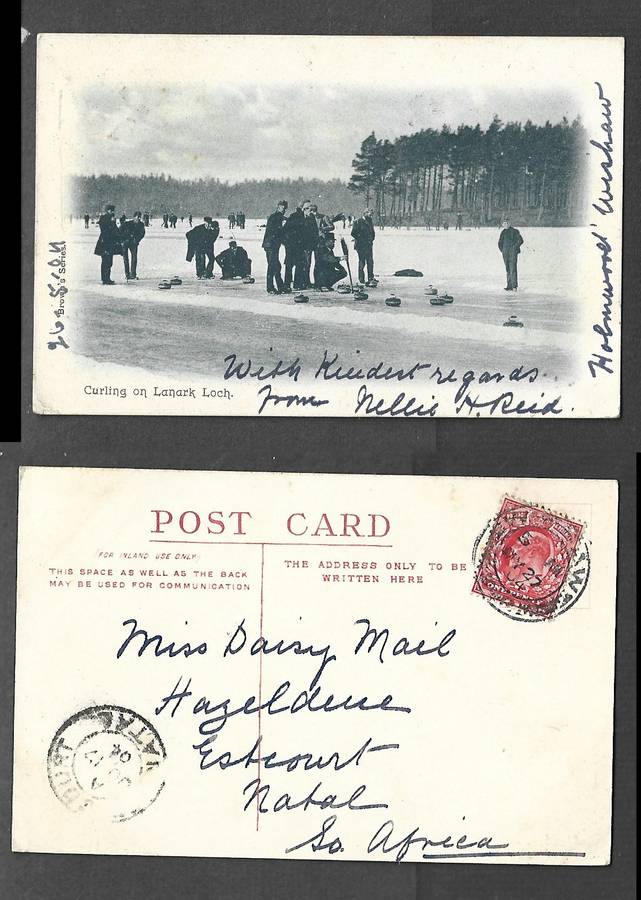 Brown's Series.
26-5-04
Holmwood' Wishaw
With Kindest regards
from Nellie H. Reid.
Curling on Lanark Loch.
POST CARD
(FOR INLAND USE ONLY)
THIS SPACE AS WELL AS THE BACK
MAY BE USED FOR COMMUNICATION
THE ADDRESS ONLY TO BE
WRITTEN HERE
MY 27
04
Miss Daisy Mail
Hazeldene
Estcourt
Natal
So. Africa
NATAL
04